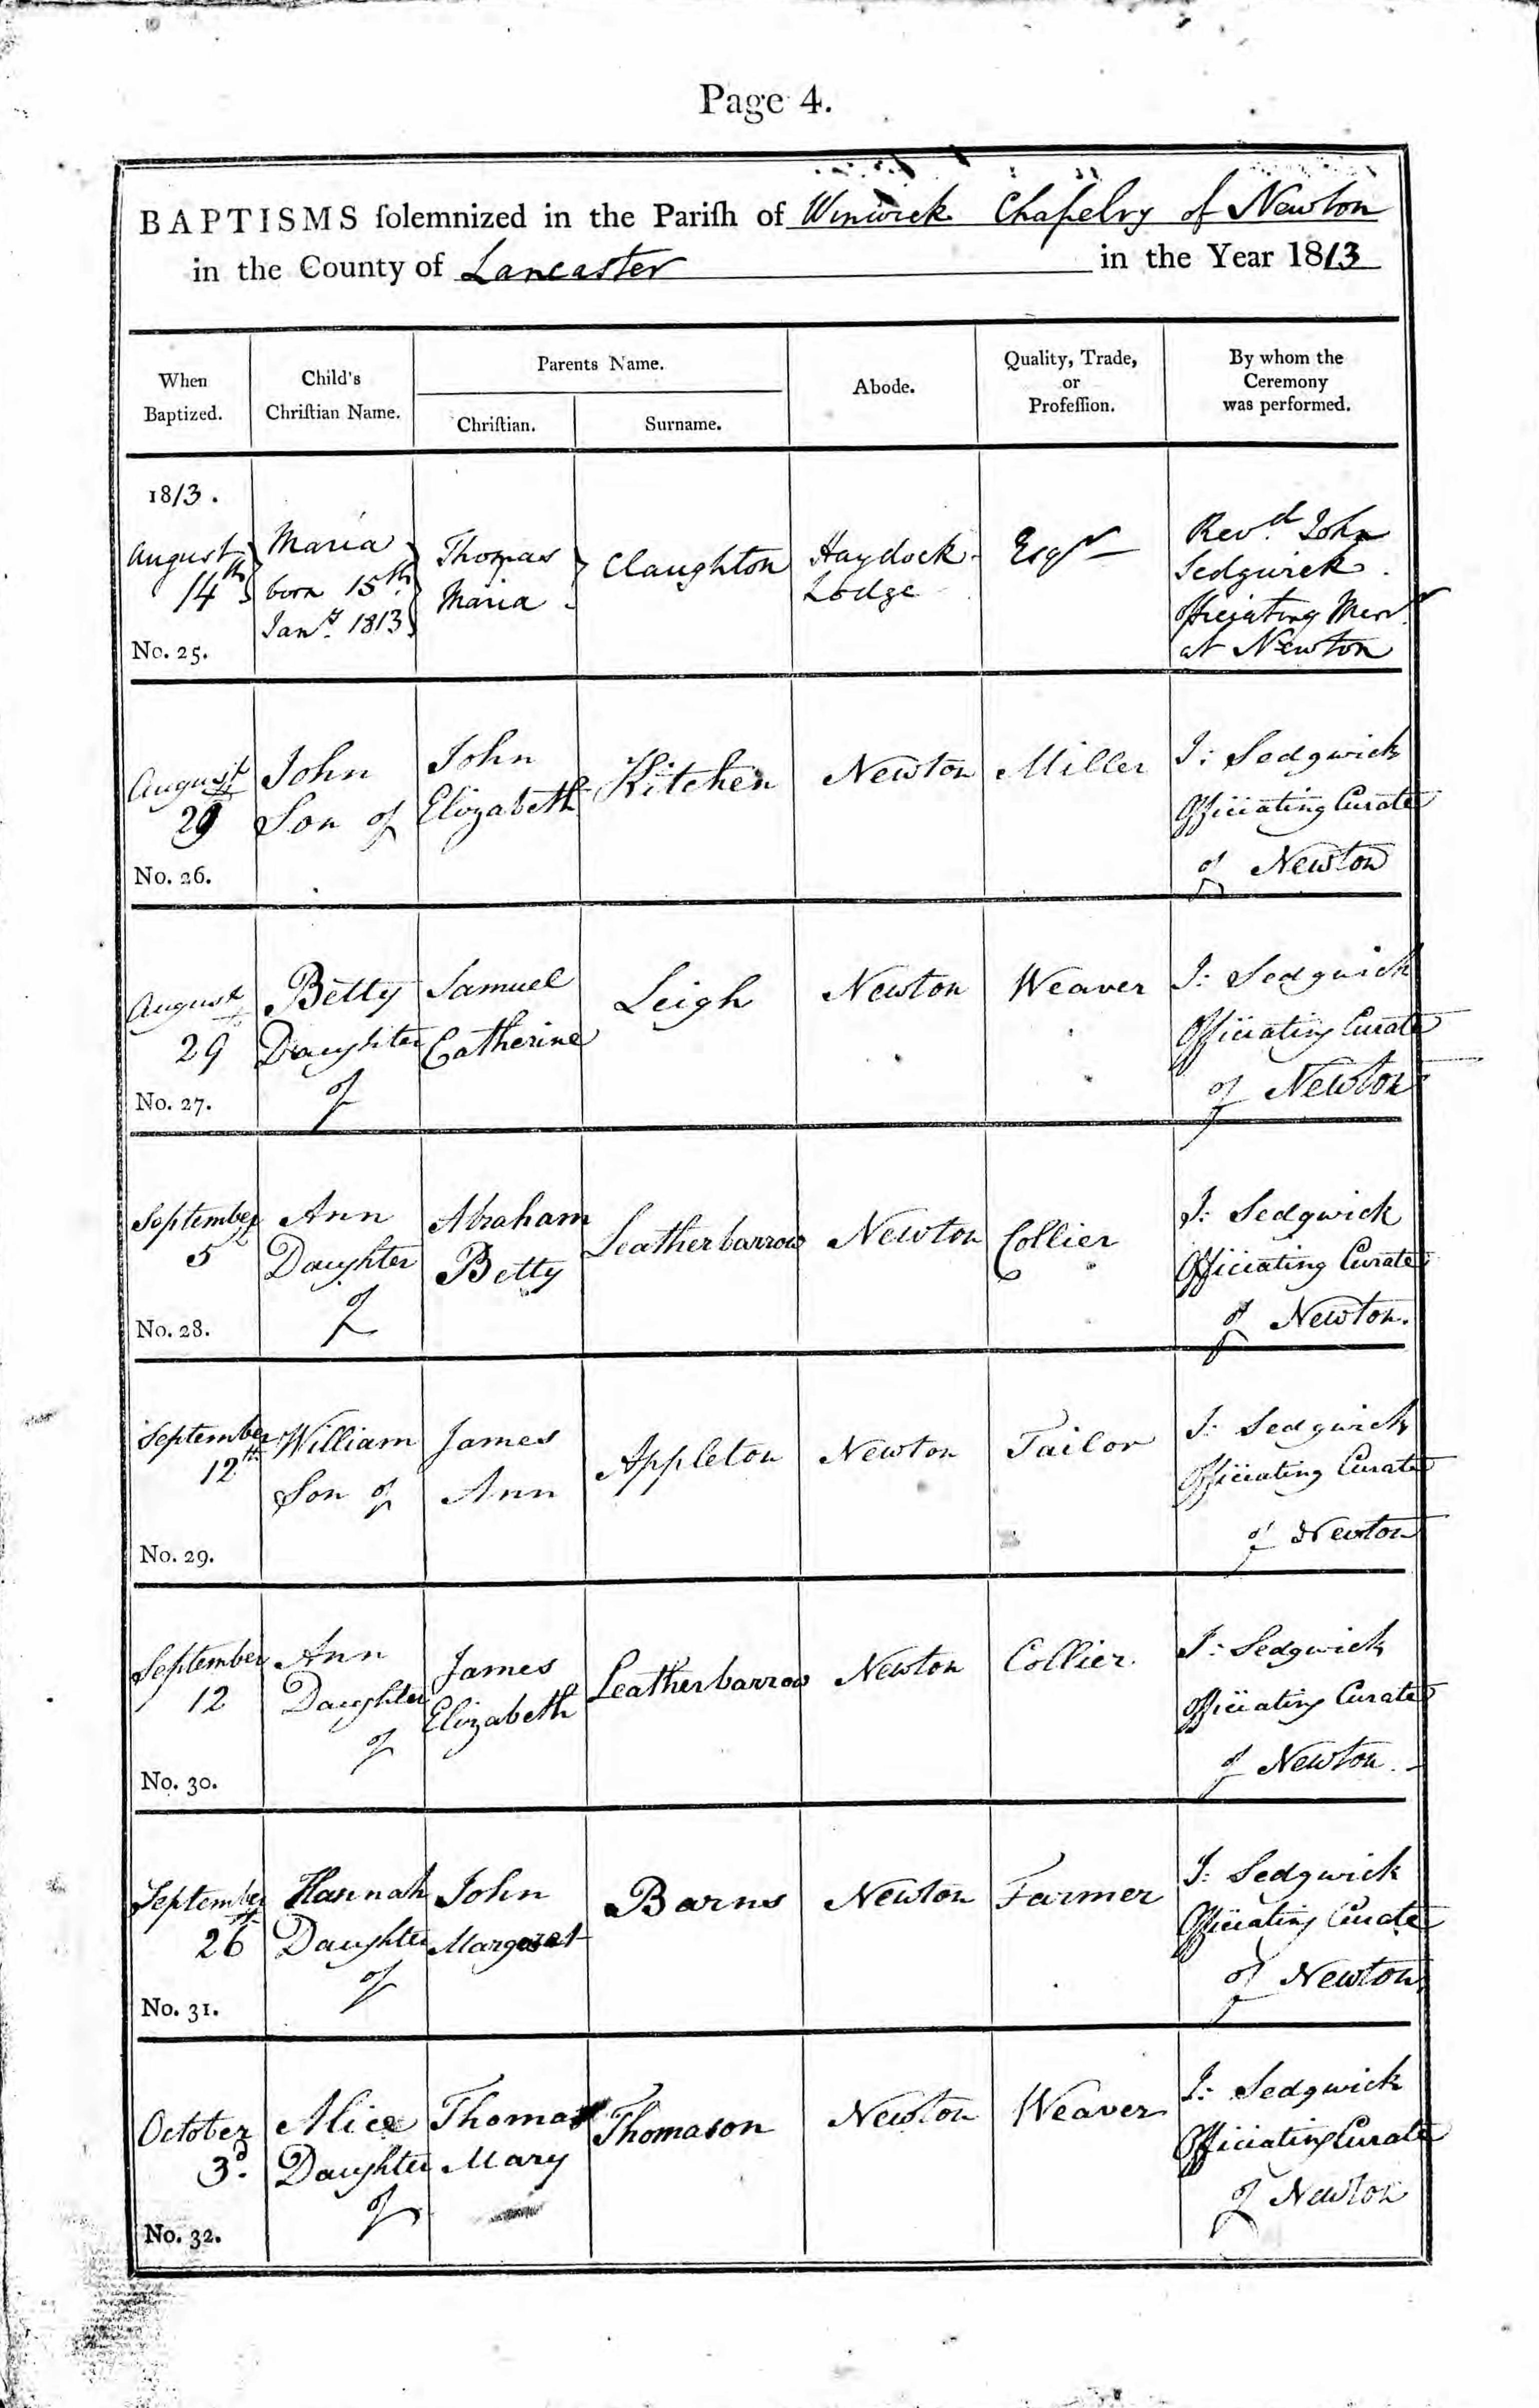 Page 4.
BAPTISMS ſolemnized in the Pariſh of Winwick Chapelry of Newton
in the County of Lancaster in the Year 1813
When
Baptized.
Child's
Chriſtian Name.
Parents Name.
Chriſtian.
Surname.
Abode.
Quality, Trade,
or
Profeſſion.
By whom the
Ceremony
was performed.
1813.
August
14th
No. 25.
Maria
born 15th
Jany. 1813
Thomas
Maria
Claughton
Haydock
Lodge
Esqr
Revd. John
Sedgwick
Officiating Minr.
at Newton
August
29
No. 26.
John
Son of
John
Elizabeth
Kitchen
Newton
Miller
J: Sedgwick
Officiating Curate
of Newton
August
29
No. 27.
Betty
Daughter
of
Samuel
Catherine
Leigh
Newton
Weaver
J: Sedgwick
Officiating Curate
of Newton
September
5
No. 28.
Ann
Daughter
of
Abraham
Betty
Leatherbarrow
Newton
Collier
J: Sedgwick
Officiating Curate
of Newton.
September
12th
No. 29.
William
Son of
James
Ann
Appleton
Newton
Tailor
J: Sedgwick
Officiating Curate
of Newton
September
12
No. 30.
Ann
Daughter
of
James
Elizabeth
Leatherbarrow
Newton
Collier.
J: Sedgwick
Officiating Curate
of Newton.
September
26
No. 31.
Hannah
Daughter
of
John
Margaret
Barns
Newton
Farmer
J: Sedgwick
Officiating Curate
of Newton
October
3d.
No. 32.
Alice
Daughter
of
Thomas
Mary
Thomason
Newton
Weaver
J: Sedgwick
Officiating Curate
of Newton